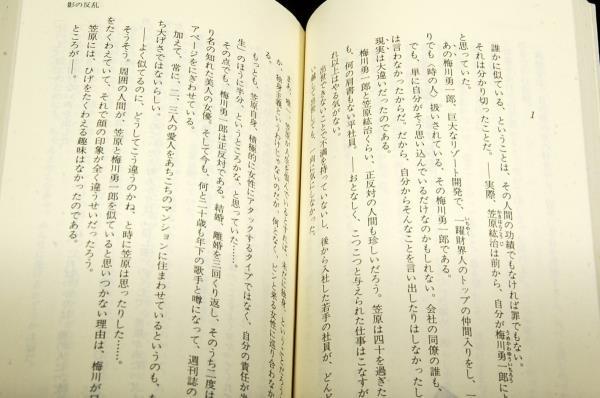 影の反乱
1
誰かに似ている、ということは、その人間の功績でもなければ罪でもない。
それは分かり切ったことだ。――実際、笠原紘治は前から、自分が梅川勇一郎に
と思っていた。
あの梅川勇一郎、巨大なリゾート開発で、一躍財界人のトップの仲間入りをし、
りでも〈時の人〉扱いされている、その梅川勇一郎である。
でも、単に自分がそう思い込んでいるだけなのかもしれない。会社の同僚の誰も、
は言わなかったからだ。だから、自分からそんなことを言い出したりはしなかった
現実は大違いだったからだ。
梅川勇一郎と笠原紘治くらい、正反対の人間も珍しいだろう。笠原は四十を過ぎた
も、何の肩書もない平社員。――おとなしく、こつこつと与えられた仕事はこなすが
れ以上はやる気がない。
出世できないことで不満を持っていないし、後から入社した若手の社員が、どんど
い越して出世して行っても、一向に気にしなかった。
もっとも、笠原自身、積極的に女性にアタックするタイプではなく、自分の責任が半
生のほうに半分、というところかな、と思っていた……。
その点でも、梅川勇一郎は正反対である。結婚、離婚を三回くり返し、そのうち二度は
り名の知れた美人の女優。そして今も、何と二十歳も年下の歌手と噂になって、週刊誌の
アページをにぎわせている。
加えて、常に、二、三人の愛人をあちこちのマンションに住まわせているというのも、た
ち大げさではないらしい。
――よく似てるのに、どうしてこう違うのかね、と時に笠原は思ったりした……。
そうそう。周囲の人間が、笠原と梅川勇一郎を似ていると思いつかない理由は、梅川が口
をたくわえていて、それで顔の印象が全く違うせいだったろう。
笠原には、ひげをたくわえる趣味はなかったのである。
ところが――。